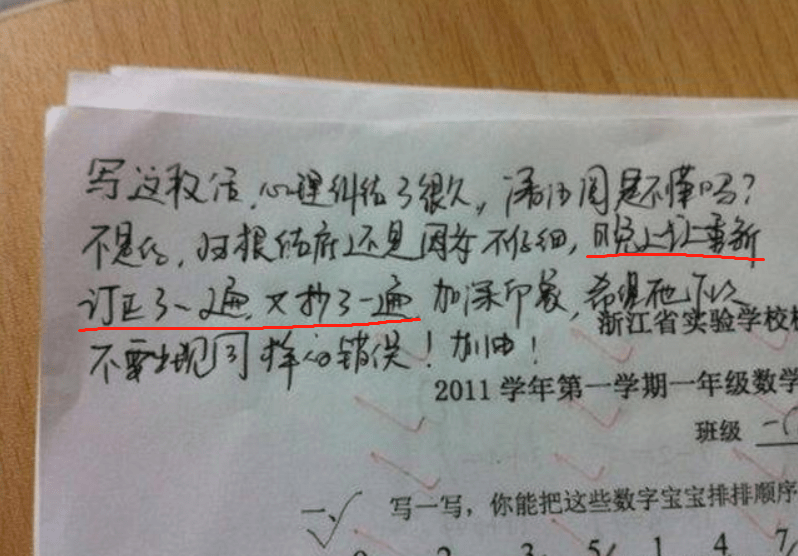 写这段话,心理纠结了很久,,潘沛周是不懂吗?
不是的,归根结底还是因为不仔细,晚上让重新
订正了一遍,又抄了一遍 加深印象,希望他下次
浙江省实验学校
不要出现同样的错误!加油!
2011学年第一学期一年级数学
班级 一(
一、 写一写,你能把这些数字宝宝排排顺序
2 3 5 1 4 7